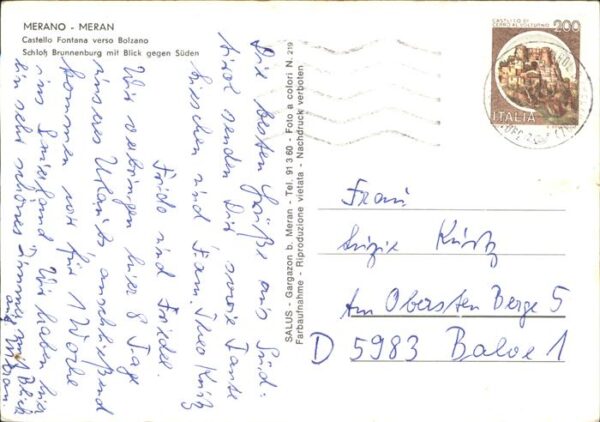 MERANO - MERAN
Castello Fontana verso Bolzano
Schloß Brunnenburg mit Blick gegen Süden
Die besten Grüße aus Süd-
tirol senden Dir sowie Tante
bisschen und Fam. Theo Kürtz
Frido und Friedel.
Wir verbringen hier 8 Tage
unseres Urlaubs anschließend
kommen wir für 1 Woche
ins Sauerland. Wir haben hier
ein sehr schönes Zimmer mit Blick
auf Meran.
SALUS - Gargazon b. Meran - Tel. 91 3 60 - Foto a colori N. 219
Farbaufnahme - Riproduzione vietata - Nachdruck verboten
CASTELLO DI
CERRO AL VOLTURNO
200
ITALIA
Frau
Kürtz
Am Obersten Berge 5
D 5983 Balve 1